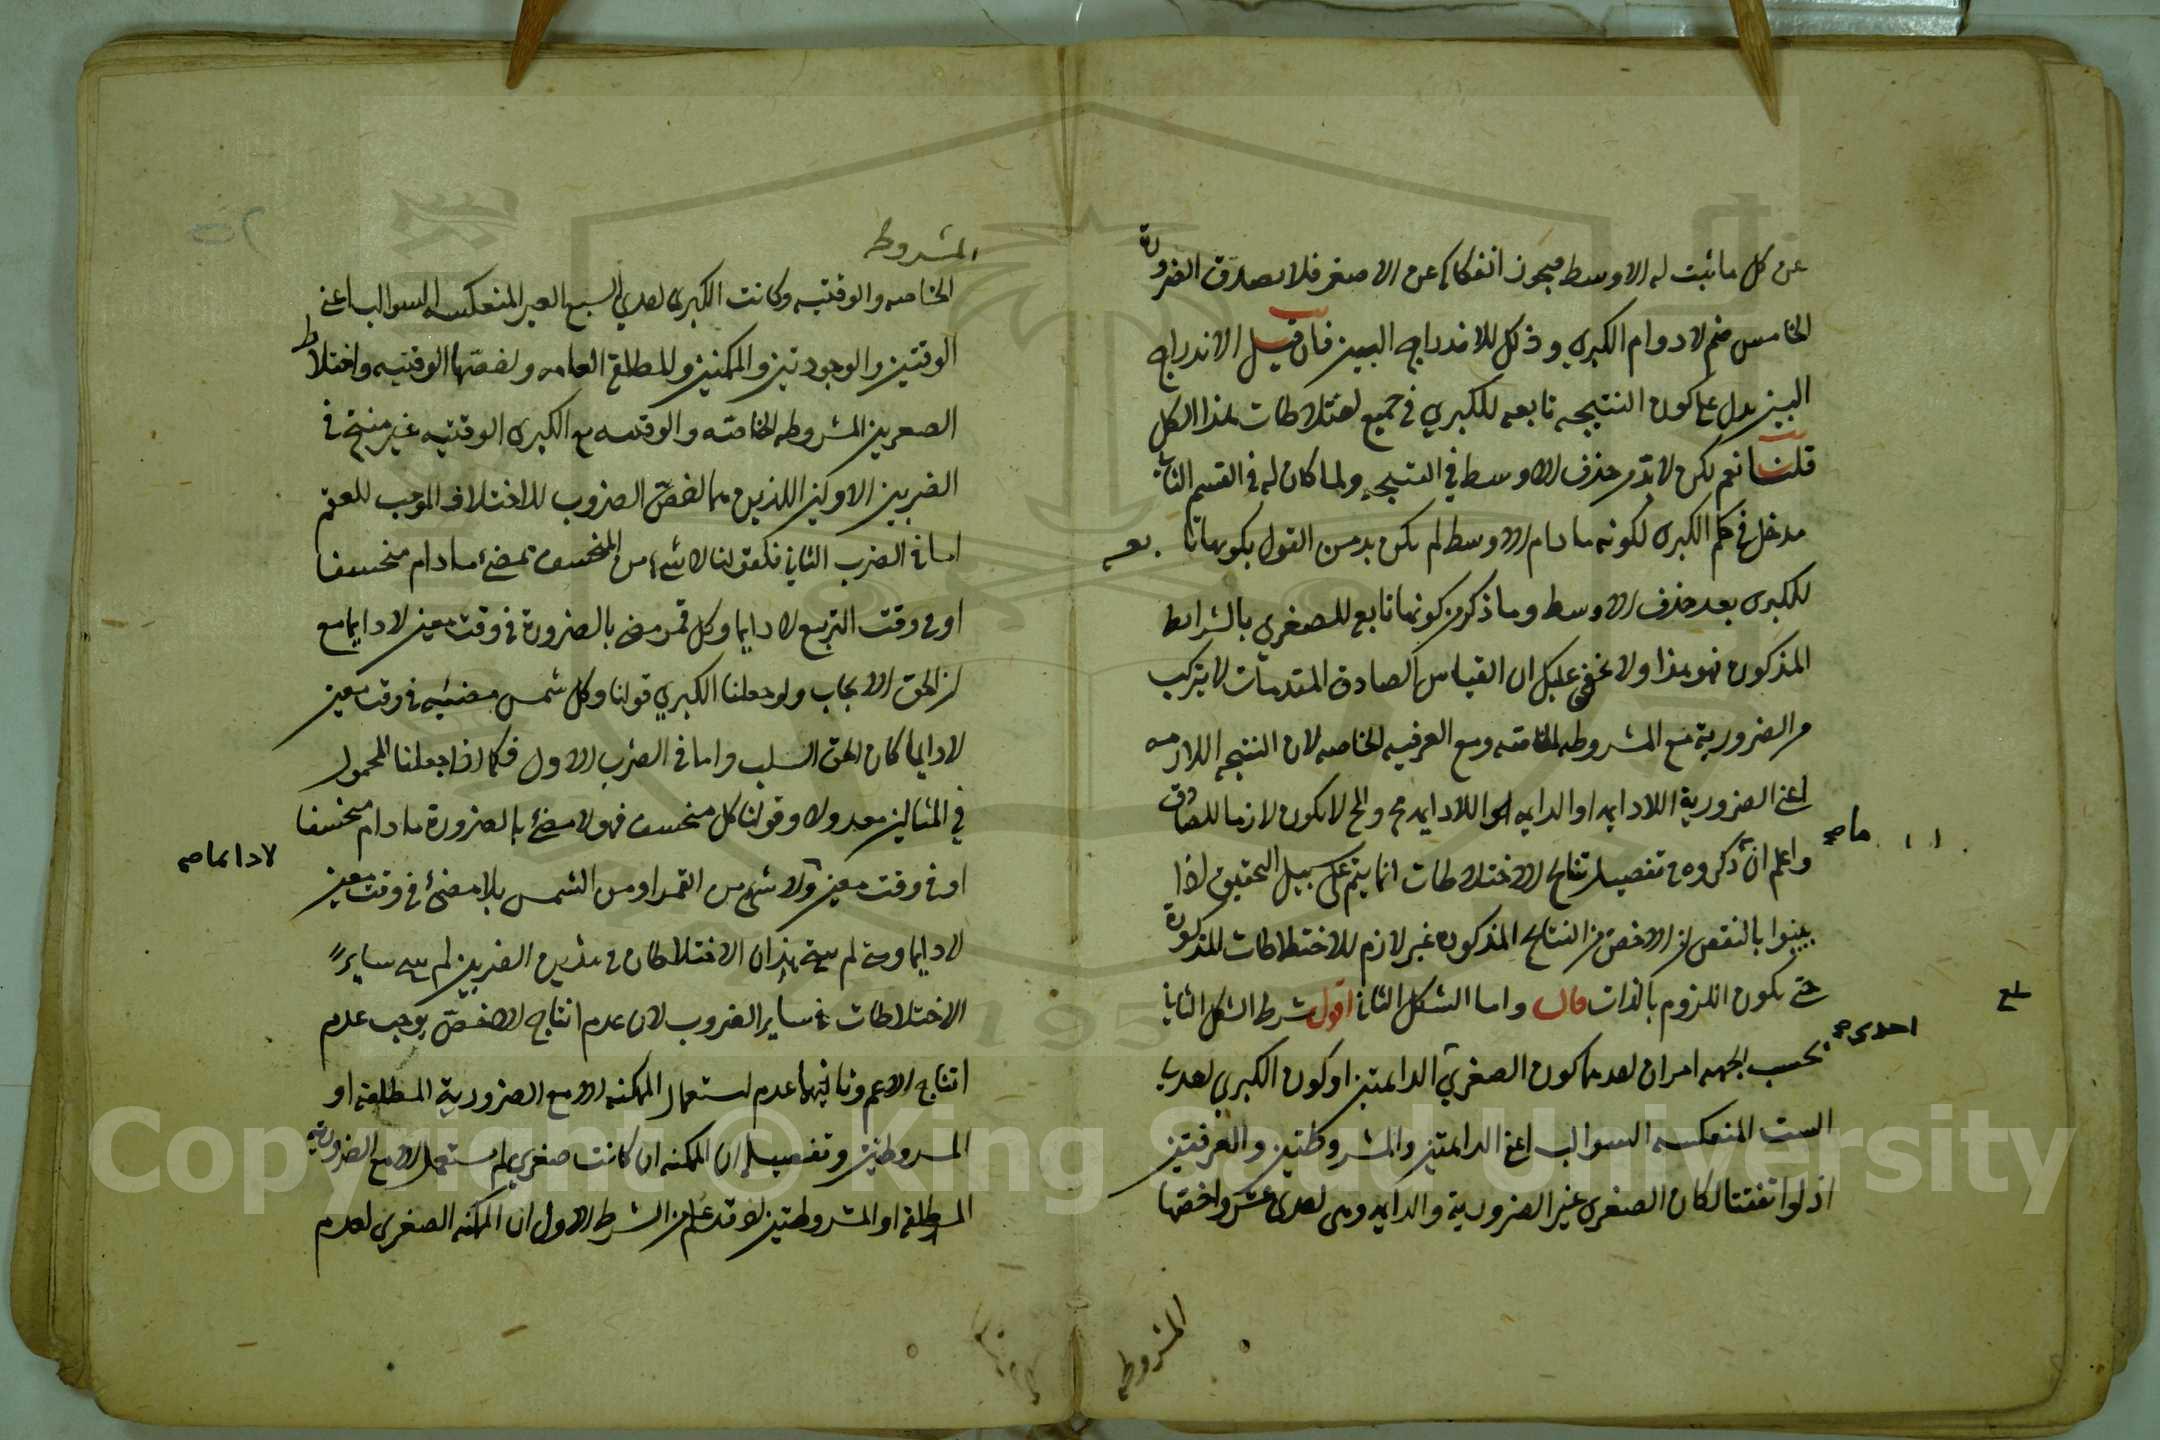 عن كل ما ثبت له الاوسط فيجوز انفكاكها عن الاصغر فلا يصدق الضرورة
الخامس ضم لا دوام الكبرى وذلك للاندراج البين فان قيل الاندراج
البين يدل على كون النتيجه تابعه للكبري في جميع اختلاطات هذا الشكل
قلنا نعم لكن لا بد من حذف الاوسط في النتيجه ولما كان له في القسم الثاني
مدخل في حكم الكبرى لكونه ما دام الاوسط لم يكن بد من القول بكونها تابعه
للكبرى بعد حذف الاوسط وما ذكر من كونها تابع للصغري بالشرايط
المذكور فهو هذا ولا يخفى عليك ان القياس الصادق المقدمات لا يتركب
من الضرورية مع المشروطه الخاصه ومع العرفيه الخاصه لان النتيجه اللازمه
اعني الضرورية اللادايمه او الدايمه اللادايمه مح والمح لا يكون لازما للصادق
واعلم ان ما ذكروه في تفصيل نتايج الاختلاطات انما يتم على سبيل التحقيق اذا
بينوا بالنقض ان الاخص من النتايج المذكوره غير لازم للاختلاطات المذكورة
حتى يكون اللزوم بالذات قال واما الشكل الثاني اقول شرط الشكل الثاني
بحسب الجهه امران احدهما كون الصغرى احدى الدايمتين او كون الكبرى احدى
الست المنعكسه السوالب اعني الدايمتين والمشروطتين والعرفيتين
اذ لو انتفتا لكان الصغرى غير الضرورية والدايمه وهي احدى عشر واخصها
المشروطه
المشروطه
الخاصه والوقتيه وكانت الكبرى احدي السبع الغير المنعكسه السوالب اعني
الوقتيتين والوجوديتين والممكنتين والمطلقة العامه واخصها الوقتيه واختلاط
الصغريين المشروطه الخاصه والوقتيه مع الكبرى الوقتيه غير منتج في
الضربين الاولين اللذين هما اخص الضروب للاختلاف الموجب للعقم
اما في الضرب الثاني فكقولنا لا شيء من المنخسف بمضئ ما دام منخسفا
او في وقت التربيع لا دايما وكل قمر مضئ بالضرورة في وقت معين لا دايما مع
ان الحق الايجاب ولو جعلنا الكبري قولنا وكل شمس مضيئه في وقت معين
لا دايما كان الحق السلب واما في الضرب الاول فكما اذا جعلنا المحمول
في المثالين معدولا وقولنا كل منخسف فهو لا مضئ بالضرورة ما دام منخسفا
او في وقت معين لا دايما ولا شيء من القمر او من الشمس بلا مضئ في وقت معين
لا دايما ومتى لم ينتج هذان الاختلاطان في هذين الضربين لم ينتج ساير
الاختلاطات في ساير الضروب لان عدم انتاج الاخص يوجب عدم
انتاج الاعم وثانيهما عدم استعمال الممكنه الا مع الضرورية المطلقه او
المشروطتين وتفصيله ان الممكنه ان كانت صغرى لم يستعمل الا مع الضرورية
المطلقة او المشروطتين لانه قد علم من الشرط الاول ان الممكنه الصغرى لعدم
Copyright © King Saud University
1957